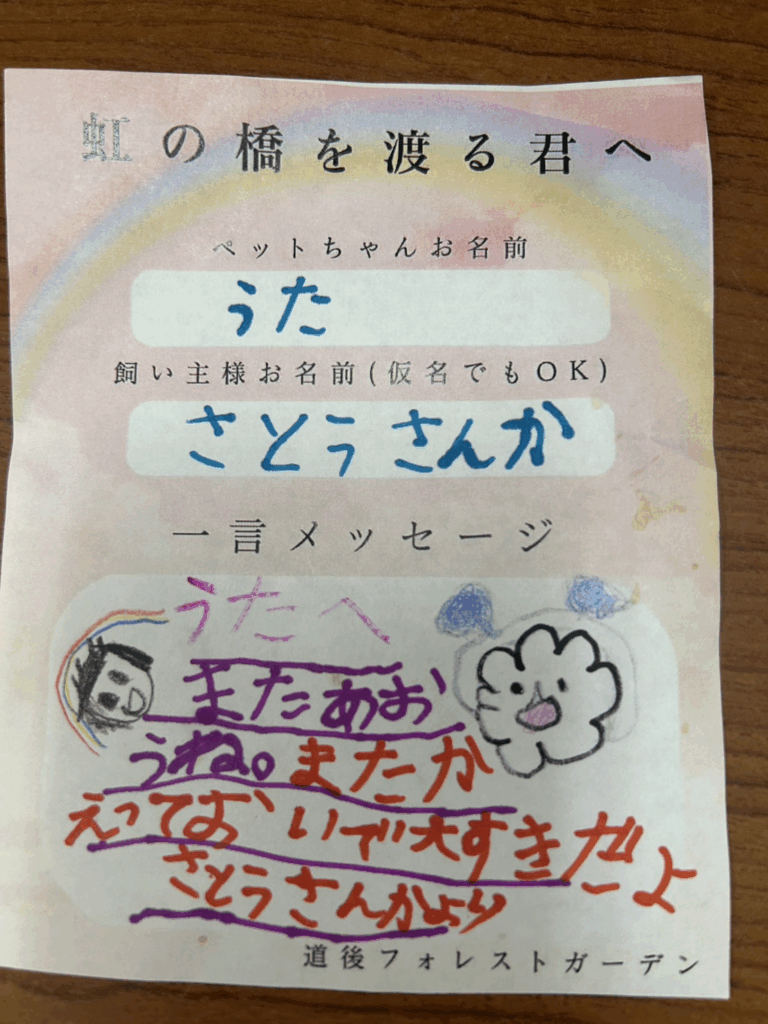 虹の橋を渡る君へ
ペットちゃんお名前
うた
飼い主様お名前(仮名でもOK)
さとうさんか
一言メッセージ
うたへ
またあお
うね。またか
えっておいで大すきだよ
さとうさんかより
道後フォレストガーデン